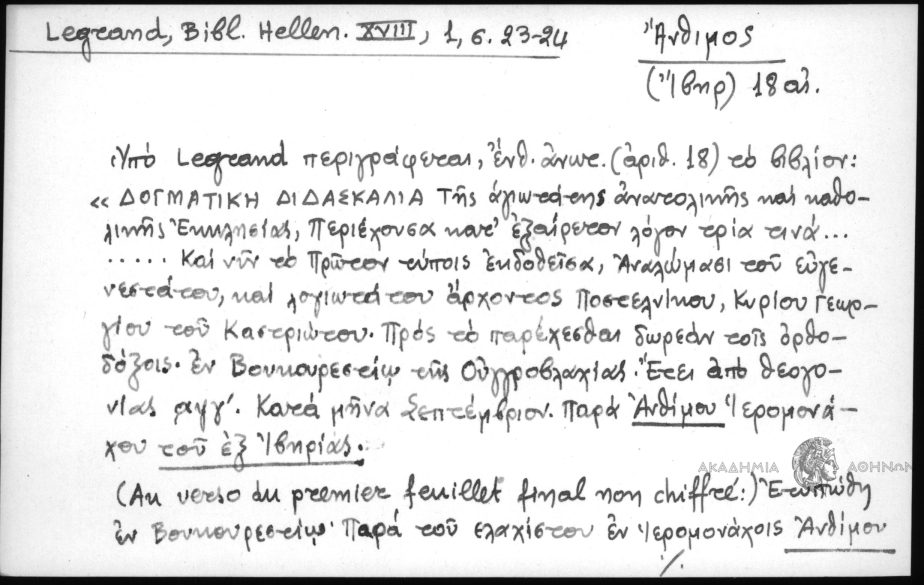 Legrand, Bibl. Hellen. XVIII, 1, σ. 23-24
Ἄνθιμος
(Ἴβηρ) 18 αἰ.
Ὑπό Legrand περιγράφεται, ἔνθ. ἄνωτ. (ἀριθ. 18) τό βιβλίον:
« ΔΟΓΜΑΤΙΚΗ ΔΙΔΑΣΚΑΛΙΑ Τῆς ἁγιωτάτης ἀνατολικῆς καί καθο-
λικῆς Ἐκκλησίας, Περιέχουσα κατ' ἐξαίρετον λόγον τρία τινά...
..... Καί νῦν τό Πρῶτον τύποις ἐκδοθεῖσα, Ἀναλώμασι τοῦ εὐγε-
νεστάτου, καί λογιωτάτου ἄρχοντος Ποστελνίκου, Κυρίου Γεωρ-
γίου τοῦ Καστριώτου. Πρός τό παρέχεσθαι δωρεάν τοῖς ὀρθο-
δόξοις. ἐν Βουκουρεστίῳ τῆς Οὐγγροβλαχίας. Ἔτει ἀπό θεογο-
νίας αψγ'. Κατά μῆνα Σεπτέμβριον. Παρά Ἀνθίμου Ἱερομονά-
χου τοῦ ἐξ Ἰβηρίας.
ΑΚΑΔΗΜΙΑ ΑΘΗΝΩΝ
(Au verso du premier feuillet final non chiffré:) Ἐτυπώθη
ἐν Βουκουρεστίῳ Παρά τοῦ ἐλαχίστου ἐν Ἱερομονάχοις Ἀνθίμου
./.